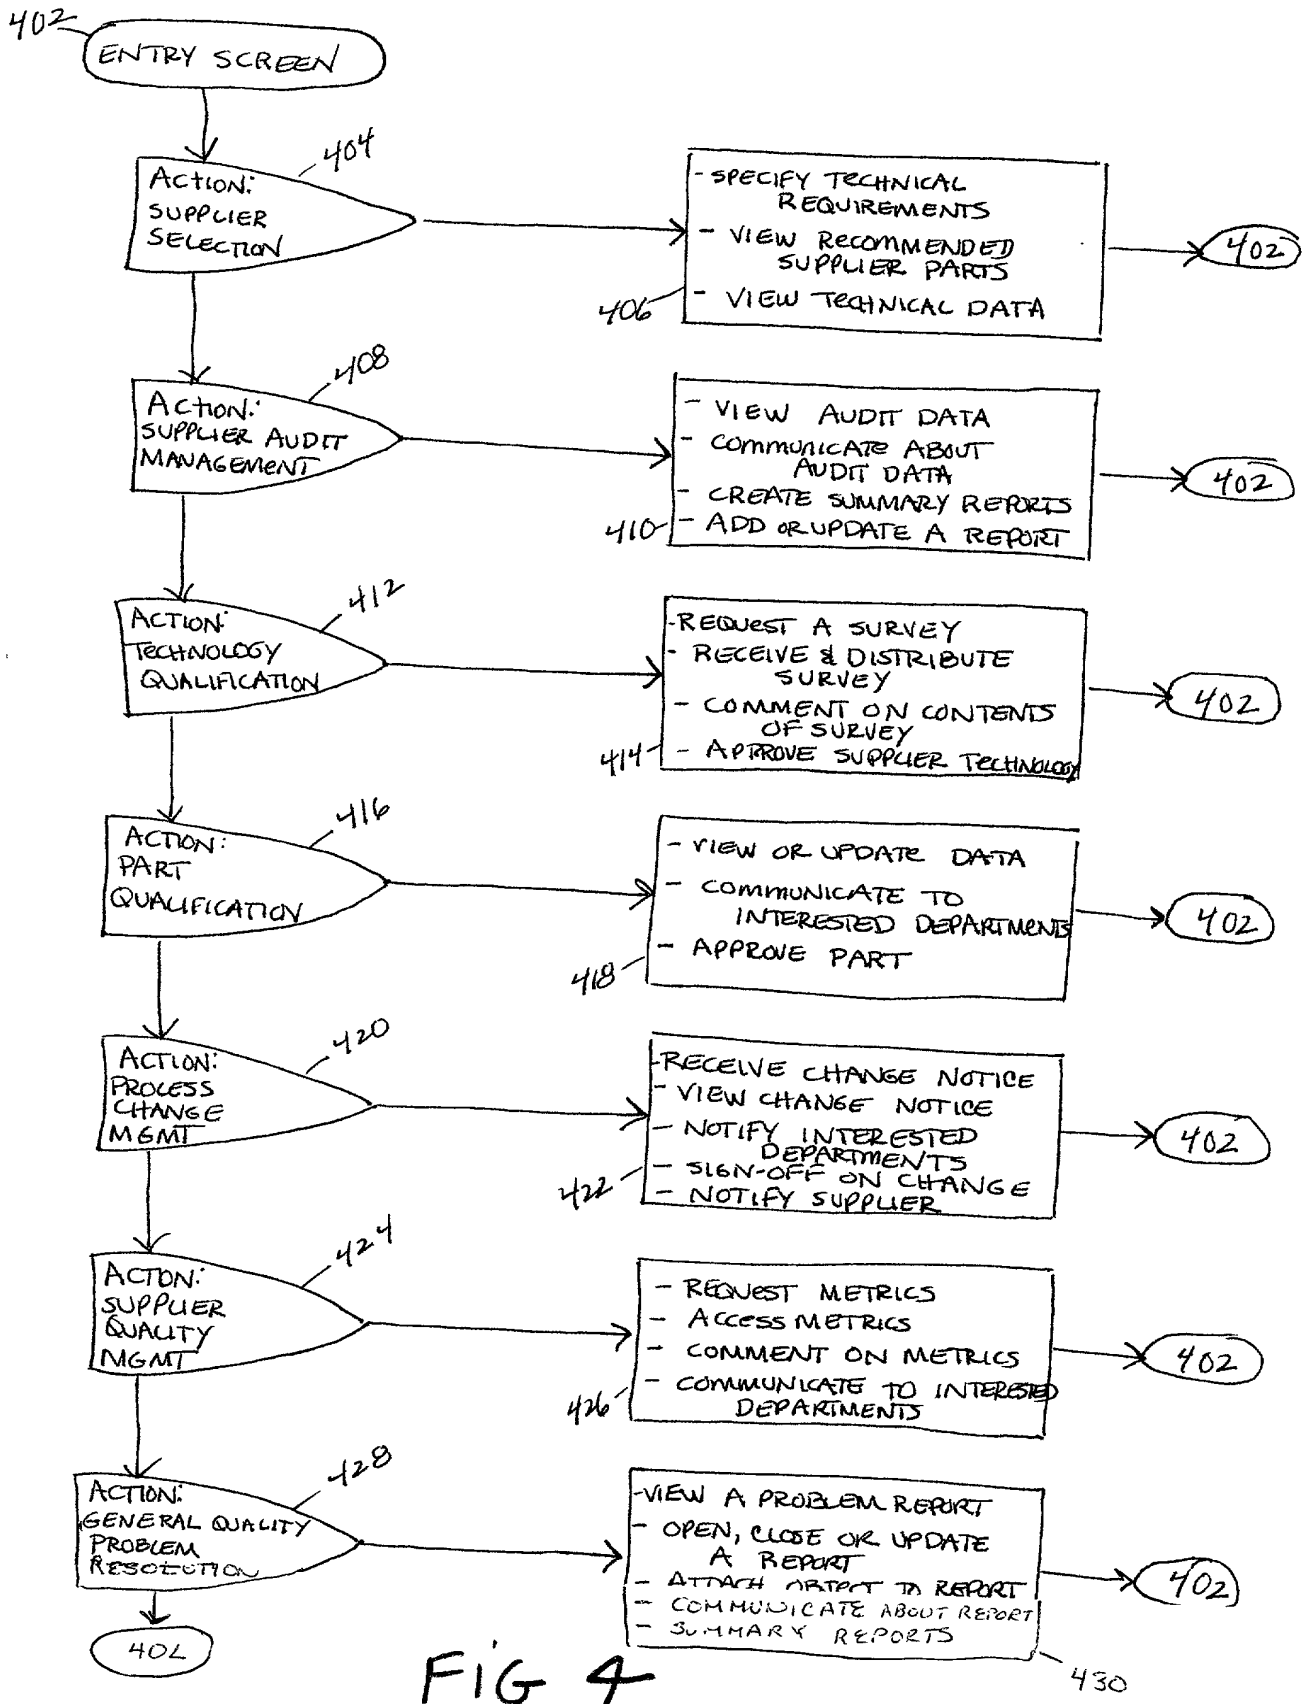 402
ENTRY SCREEN
404
ACTION:
SUPPLIER
SELECTION
- SPECIFY TECHNICAL
REQUIREMENTS
- VIEW RECOMMENDED
SUPPLIER PARTS
- VIEW TECHNICAL DATA
406
402
408
ACTION:
SUPPLIER AUDIT
MANAGEMENT
- VIEW AUDIT DATA
- COMMUNICATE ABOUT
AUDIT DATA
- CREATE SUMMARY REPORTS
- ADD OR UPDATE A REPORT
410
402
412
ACTION:
TECHNOLOGY
QUALIFICATION
- REQUEST A SURVEY
- RECEIVE & DISTRIBUTE
SURVEY
- COMMENT ON CONTENTS
OF SURVEY
- APPROVE SUPPLIER TECHNOLOGY
414
402
416
ACTION:
PART
QUALIFICATION
- VIEW OR UPDATE DATA
- COMMUNICATE TO
INTERESTED DEPARTMENTS
- APPROVE PART
418
402
420
ACTION:
PROCESS
CHANGE
MGMT
- RECEIVE CHANGE NOTICE
- VIEW CHANGE NOTICE
- NOTIFY INTERESTED
DEPARTMENTS
- SIGN-OFF ON CHANGE
- NOTIFY SUPPLIER
422
402
424
ACTION:
SUPPLIER
QUALITY
MGMT
- REQUEST METRICS
- ACCESS METRICS
- COMMENT ON METRICS
- COMMUNICATE TO INTERESTED
DEPARTMENTS
426
402
428
ACTION:
GENERAL QUALITY
PROBLEM
RESOLUTION
- VIEW A PROBLEM REPORT
- OPEN, CLOSE OR UPDATE
A REPORT
- ATTACH TO REPORT
- COMMUNICATE ABOUT REPORT
- SUMMARY REPORTS
430
402
402
FIG 4